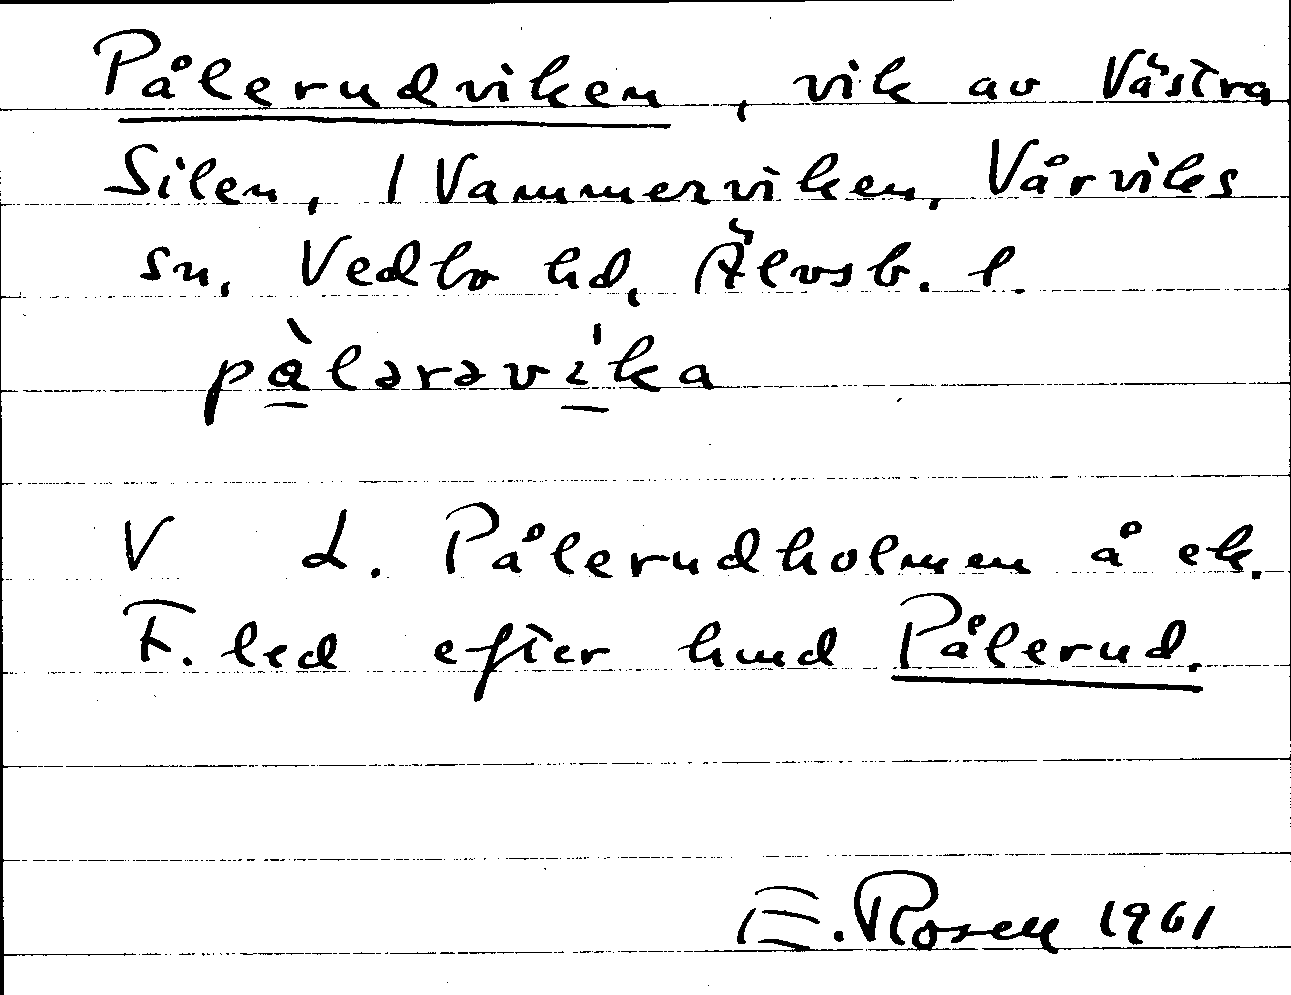 Pålerudviken, vik av Västra
Silen, / Vammerviken, Vårviks
sn, Vedbo hd, Älvsb. l.
pàlərəvi̍ka
V L. Pålerudholmen å ek.
F. led efter hmd Pålerud.
E. Rosell 1961